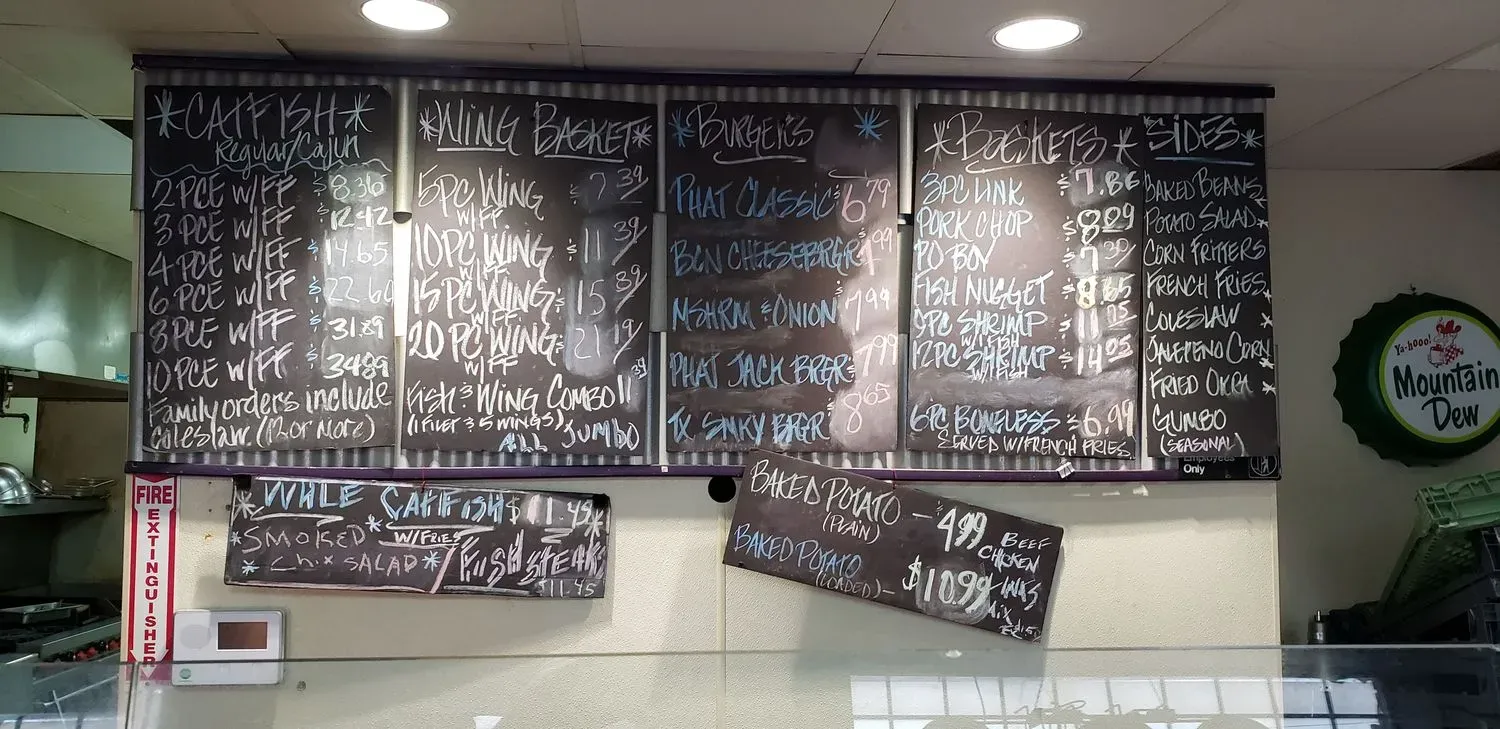 *CATFISH*
Regular/Cajun
2 PCE W/FF $8.36
3 PCE W/FF $12.42
4 PCE W/FF $14.65
6 PCE W/FF $22.60
8 PCE W/FF $31.89
10 PCE W/FF $34.89
Family orders include
coleslaw (12 or more)
*WING BASKET*
5PC WING $7.39
W/FF
10PC WING $11.39
W/FF
15PC WING $15.89
W/FF
20 PC WING $21.19
W/FF
FISH & WING COMBO 11.39
(1 FILET & 5 WINGS)
ALL JUMBO
*BURGERS*
PHAT CLASSIC $6.79
BCN CHEESEBRGR
MSHRM & ONION 7.99
PHAT JACK BRGR $7.99
TX SNKY BRGR $8.65
*BASKETS*
3PC LINK $7.86
PORK CHOP $8.29
PO BOY $7.39
FISH NUGGET $8.65
9PC SHRIMP $11.75
W/FISH
12PC SHRIMP $14.05
W/FISH
6PC BONELESS $6.99
SERVED W/FRENCH FRIES
*SIDES*
BAKED BEANS
POTATO SALAD
CORN FRITTERS
FRENCH FRIES
COLESLAW
JALEPENO CORN
FRIED OKRA
GUMBO
(SEASONAL)
Employees
Only
Ya-hooo!
Mountain
Dew
WHLE CATFISH $11.45
W/FRIES
*SMOKED
CHIX SALAD*
FISH STEAKS
$11.45
BAKED POTATO — 4.99
(PLAIN)
BAKED POTATO
(LOADED) — $10.99
BEEF
CHICKEN
LINKS
MIX
FIRE
EXTINGUISHER